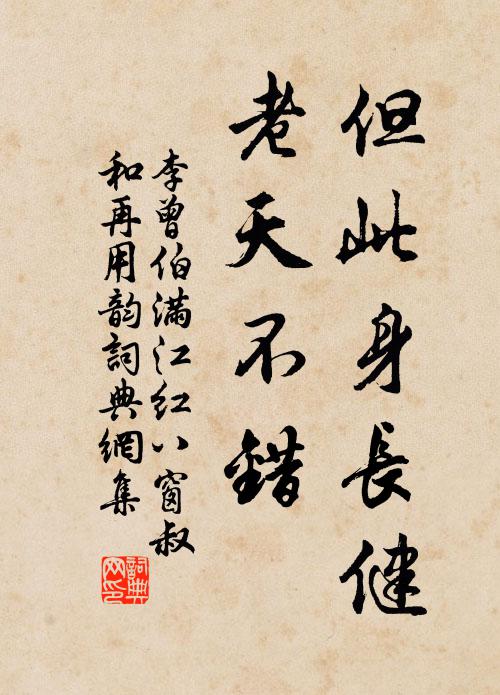 但此身長健
老天不錯
李曾伯滿江紅八窗叔
和再用韵詞典網集
詞典网印